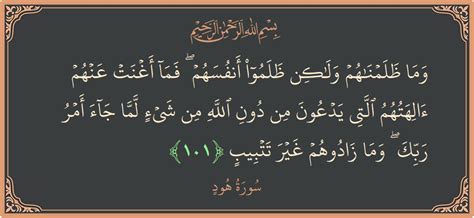 بِسْمِ اللَّهِ الرَّحْمَٰنِ الرَّحِيمِ
وَمَا ظَلَمْنَٰهُمْ وَلَٰكِن ظَلَمُوٓا۟ أَنفُسَهُمْ ۖ فَمَآ أَغْنَتْ عَنْهُمْ
ءَالِهَتُهُمُ ٱلَّتِى يَدْعُونَ مِن دُونِ ٱللَّهِ مِن شَىْءٍ لَّمَّا جَآءَ أَمْرُ
رَبِّكَ ۖ وَمَا زَادُوهُمْ غَيْرَ تَتْبِيبٍ ﴿١٠١﴾
سُورَةُ هُودٍ